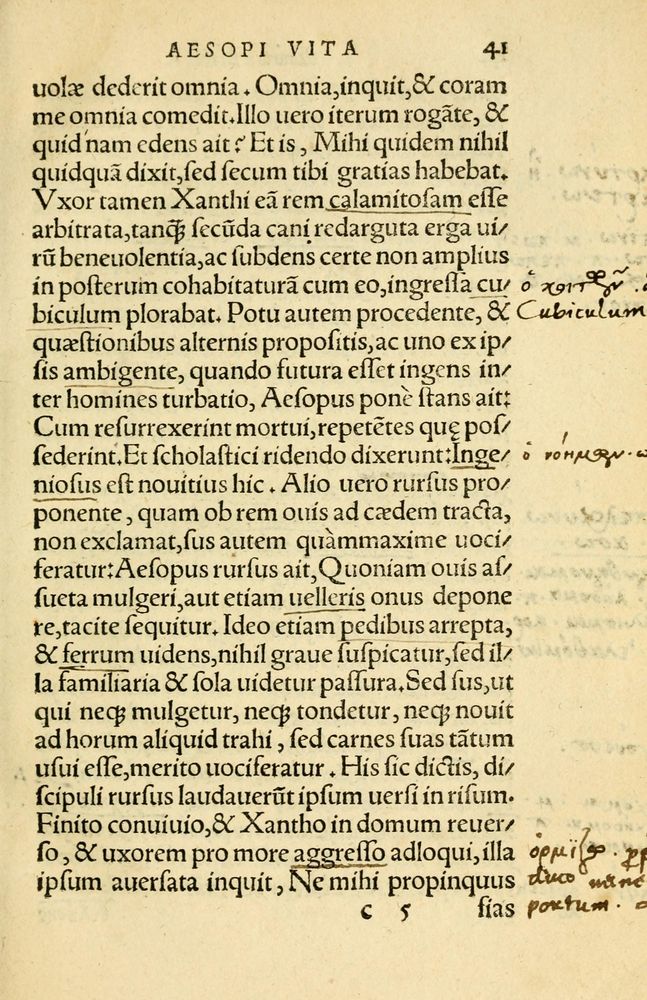 AESOPI VITA 41
uolæ dederit omnia. Omnia, inquit, & coram
me omnia comedit. Illo uero iterum rogāte, &
quid nam edens ait? Et is, Mihi quidem nihil
quidquā dixit, sed secum tibi gratias habebat.
Vxor tamen Xanthi eā rem calamitosam esse
arbitrata, tanq̃ secūda cani redarguta erga ui/
rū beneuolentia, ac subdens certe non amplius
in posterum cohabitaturā cum eo, ingressa cu/
biculum plorabat. Potu autem procedente, &
Cubiculum
quæstionibus alternis propositis, ac uno ex ip/
sis ambigente, quando futura esset ingens in/
ter homines turbatio, Aesopus ponè stans ait:
Cum resurrexerint mortui, repetētes quę pos/
sederint. Et scholastici ridendo dixerunt: Inge/
niosus est nouitius hic. Alio uero rursus pro/
ponente, quam ob rem ouis ad cædem tracta,
non exclamat, sus autem quàmmaxime uoci/
feratur: Aesopus rursus ait, Quoniam ouis as/
sueta mulgeri, aut etiam uelleris onus depone
re, tacite sequitur. Ideo etiam pedibus arrepta,
& ferrum uidens, nihil graue suspicatur, sed il/
la familiaria & sola uidetur passura. Sed sus, ut
qui neq; mulgetur, neq; tondetur, neq; nouit
ad horum aliquid trahi, sed carnes suas tātum
usui esse, merito uociferatur. His sic dictis, di/
scipuli rursus laudauerūt ipsum uersi in risum.
Finito conuiuio, & Xantho in domum reuer/
so, & uxorem pro more aggresso adloqui, illa
ipsum auersata inquit, Ne mihi propinquus
duco
c 5 sias
portum.